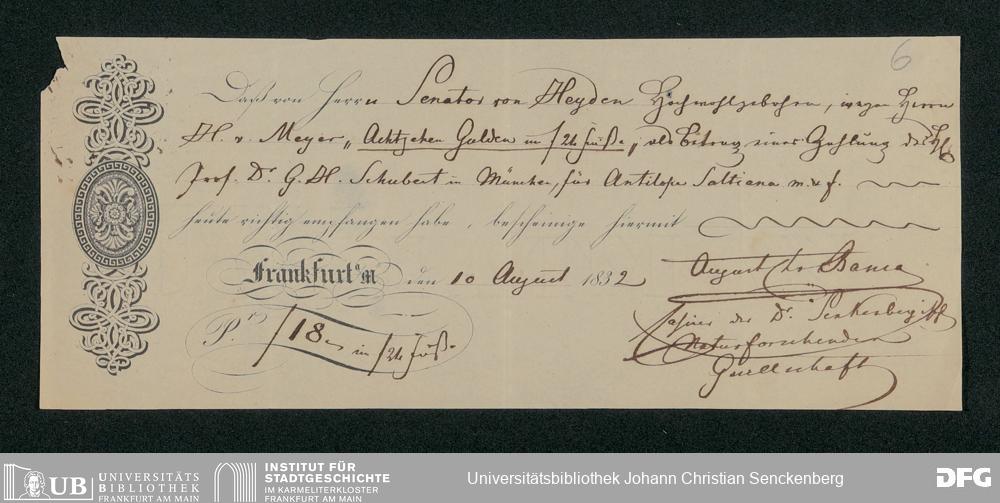 6
Daß von Herrn Senator von Heyden Hochwohlgebohren, wegen Herrn
H. v. Meyer, „Achtzehen Gulden in f 24 Fuß", als Betrag einer Zahlung des H
Prof. Dr. G. H. Schubert in München, für Antilope Saltiana m. & f.
heute richtig empfangen habe, bescheinige hiermit
Frankfurt a/M den 10 August 1832
August de Bary
P.r f 18 „ in f 24 Fuß.
Cassirer der Dr. Senkenbergisch
Naturforschenden
Gesellschaft
UB UNIVERSITÄTS
BIBLIOTHEK
FRANKFURT AM MAIN
INSTITUT FÜR
STADTGESCHICHTE
IM KARMELITERKLOSTER
FRANKFURT AM MAIN
Universitätsbibliothek Johann Christian Senckenberg
DFG